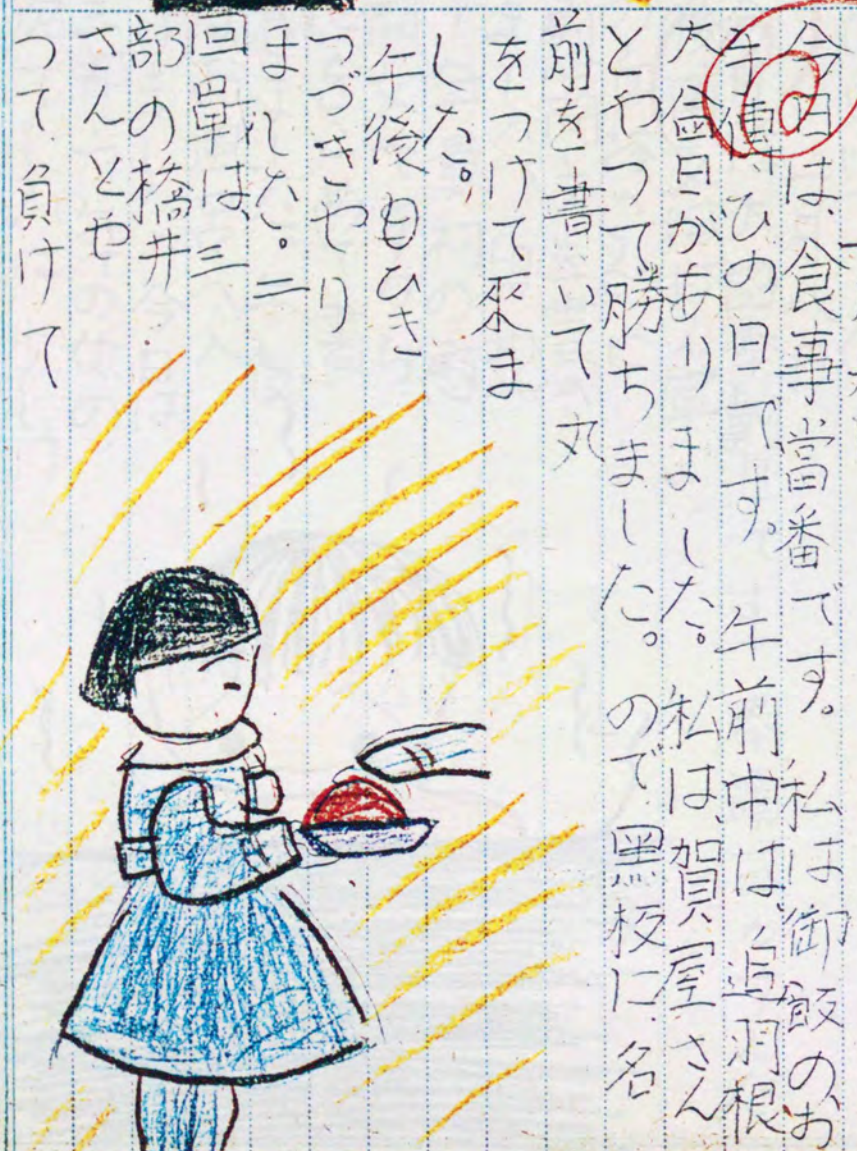 今日は、食事當番です。私は御飯のお
手傳ひの日です。午前中は、追羽根
大會日がありました。私は、賀屋さん
とやつて勝ちました。ので、黑板に、名
前を書いて丸
をつけて來ま
した。
午後もひき
つづきやり
ました。二
回單は、三
部の橋井
さんとや
つて、負けて